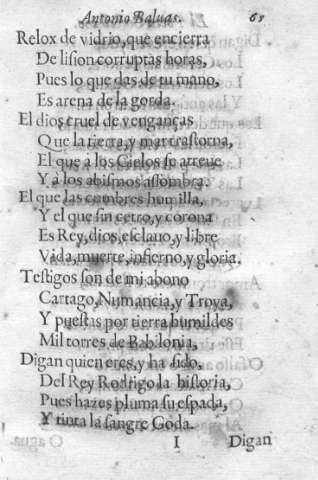 Antonio Baluas. 65
Relox de vidrio, que encierra
De lision corruptas horas,
Pues lo que das de tu mano,
Es arena de la gorda.
El dios cruel de venganças
Que la tierra, y mar trastorna,
El que a los Cielos se atreue
Y a los abismos assombra.
El que las cumbres humilla,
Y el que sin cetro, y corona
Es Rey, dios, esclauo, y libre
Vida, muerte, infierno, y gloria.
Testigos son de mi abono
Cartago, Numancia, y Troya,
Y puestas por tierra humildes
Mil torres de Babilonia,
Digan quien eres, y ha sido,
Del Rey Rodrigo la historia,
Pues hazes pluma su espada,
Y tinta la sangre Goda.
I Digan